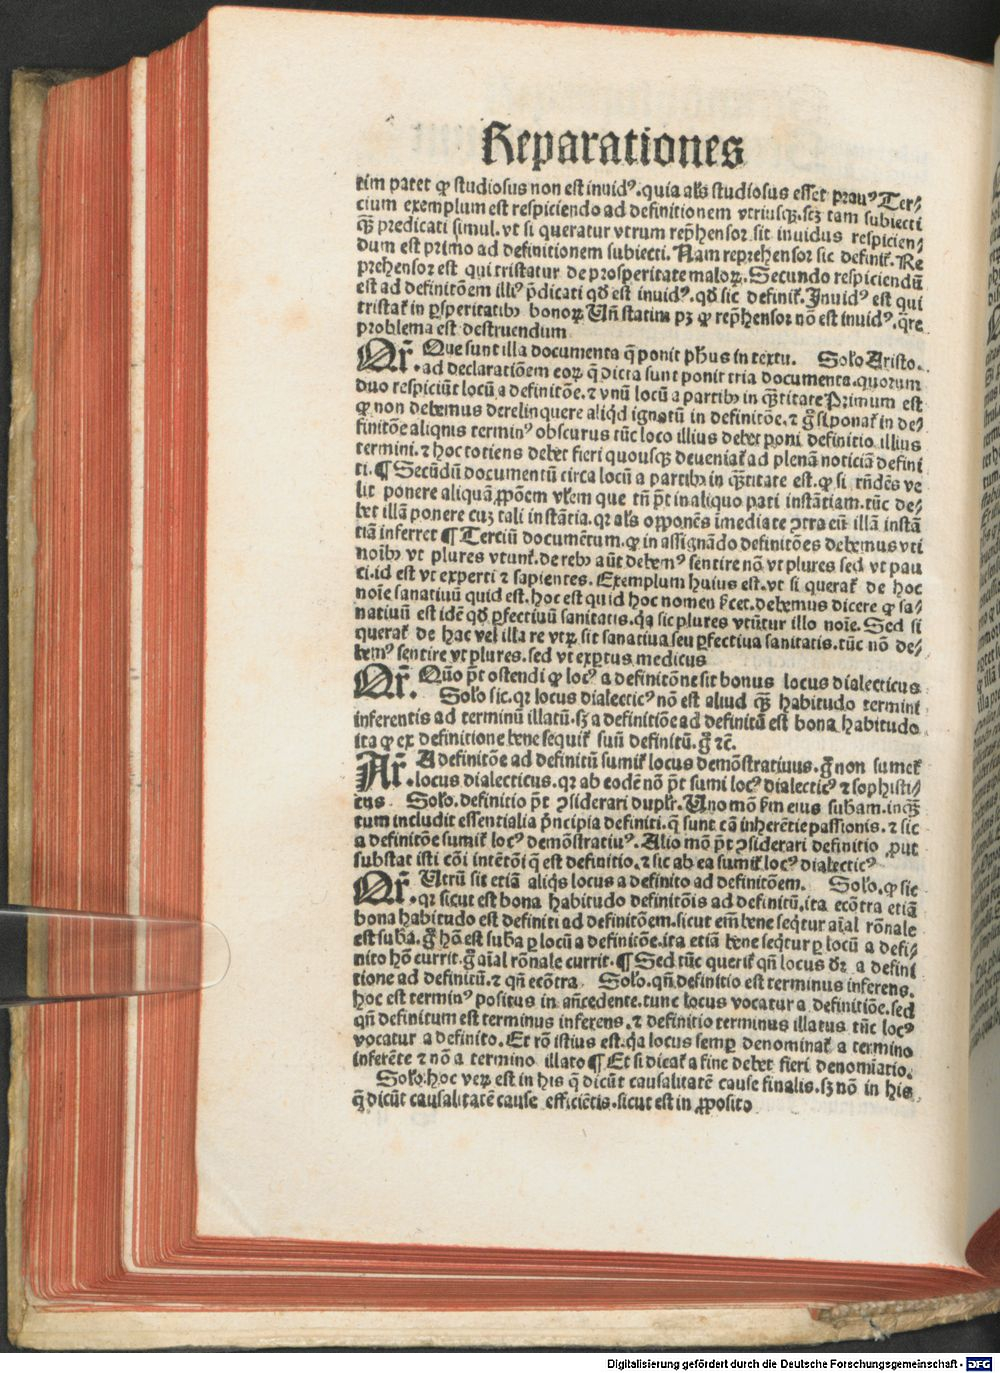 Reparationes
tim patet ꝙ studiosus non est inuidꝰ. quia als studiosus esset prauꝰ Ter⸗
cium exemplum est respiciendo ad definitionem vtriusqꝫ. scꝫ tam subiecti
ꝙ̄ predicati simul. vt si queratur vtrum rep̄hensor sit inuidus respicien⸗
dum est primo ad definitionem subiecti. Nam reprehensor sic definit̉. Re
prehensor est qui tristatur de prosperitate maloꝝ. Secundo respiciendū
est ad definitōem illiꝰ p̄dicati qđ est inuidꝰ. qđ sic definit̉. Inuidꝰ est qui
tristat̉ in ꝓsperitatibꝫ bonoꝝ. Un̄ statim pꝫ ꝙ rep̄hensor nō est inuidꝰ. q̄re
problema est destruendum
Qr̄. Que sunt illa documenta q̄ ponit ph̄us in textu. Solo Aristo.
ad declaratiōem eoꝝ q̄ dicta sunt ponit tria documenta. quorum
duo respiciūt locū a definitōe. ⁊ vnū locū a partibꝫ in q̄titate Primum est
ꝙ non debemus derelinquere aliqđ ignotū in definitōe. ⁊ g̃ si ponat̉ in de⸗
finitōe aliquis terminꝰ obscurus tūc loco illius debet poni definitio illius
termini. ⁊ hoc totiens debet fieri quousqꝫ deueniat̉ ad plenā noticiā defini
ti. ¶ Secūdū documentū circa locū a partibꝫ in q̄titate est. ꝙ si rn̄dēs ve
lit ponere aliquā ꝓpōem vl̄em que tn̄ pōt in aliquo pati instātiam. tūc de⸗
bet illā ponere cuꝫ tali instātia. qꝛ als opponēs īmediate ꝯtra eū illā instā
tiā inferret ¶ Terciū documētum. ꝙ in assignādo definitōes debemus vti
noīibꝫ vt plures vtunt̉. de rebꝫ aūt debemꝰ sentire nō vt plures sed vt pau
ci. id est vt experti ⁊ sapientes. Exemplum huius est. vt si querat̉ de hoc
noīe sanatiuū quid est. hoc est quid hoc nomen dicet. debemus dicere ꝙ sa⸗
natiuū est idē qđ ꝑfectiuū sanitatis. q̄a sic plures vtūtur illo noīe. Sed si
querat̉ de hac vel illa re vtꝝ sit sanatiua seu ꝑfectiua sanitatis. tūc nō de⸗
bemꝰ sentire vt plures. sed vt exꝑtus medicus
Qr̄. Quō pōt ostendi ꝙ locꝰ a definitōne sit bonus locus dialecticus
Solo sic. qꝛ locus dialecticꝰ nō est aliud ꝙ̄ habitudo termini
inferentis ad terminū illatū. sꝫ a definitiōe ad definitū est bona habitudo
ita ꝙ ex definitione bene sequit̉ suū definitū. g̃ ⁊c̄.
Ar̄. A definitōe ad definitū sumit̉ locus demōstratiuus. g̃ non sumet̉
locus dialecticus. qꝛ ab eodē nō pōt sumi locꝰ dialecticꝰ ⁊ sophisti⸗
cus. Solo. definitio pōt ꝯsiderari duplr̄. Uno mō ẜm eius suƀam. inq̄ꝫ
tum includit essentialia p̄ncipia definiti. q̄ sunt cā inherētie passionis. ⁊ sic
a definitōe sumit̉ locꝰ demōstratiuꝰ. Alio mō pōt ꝯsiderari definitio ꝓut
substat isti cōi intētōi q̄ est definitio. ⁊ sic ab ea sumit̉ locꝰ dialecticꝰ
Qr̄. Utrū sit etiā aliq̄s locus a definito ad definitōem. Solo. ꝙ sic
qꝛ sicut est bona habitudo definitōis ad definitū. ita ecōtra etiā
bona habitudo est definiti ad definitōem. sicut em̄ bene seq̄tur aīal rōnale
est suƀa. g̃ hō est suƀa ꝑ locū a definitōe. ita etiā bene seq̄tur ꝑ locū a defi⸗
nito hō currit. g̃ aīal rōnale currit. ¶ Sed tūc querit̉ qn̄ locus dr̄ a defini
tione ad definitū. ⁊ qn̄ ecōtra. Solo. qn̄ definitio est terminus inferens.
hoc est terminꝰ positus in an̄cedente. tunc locus vocatur a definitiōe. sed
qn̄ definitum est terminus inferens. ⁊ definitio terminus illatus tūc locꝰ
vocatur a definito. Et rō istius est. q̄a locus semꝑ denominat̉ a termino
inferēte ⁊ nō a termino illato ¶ Et si dicat̉ a fine debet fieri denomīatio.
Solo. hoc veꝝ est in his q̄ dicūt causalitatē cause finalis. sꝫ nō in his
q̄ dicūt causalitatē cause efficiētis. sicut est in ꝓposito
Digitalisierung gefördert durch die Deutsche Forschungsgemeinschaft - DFG